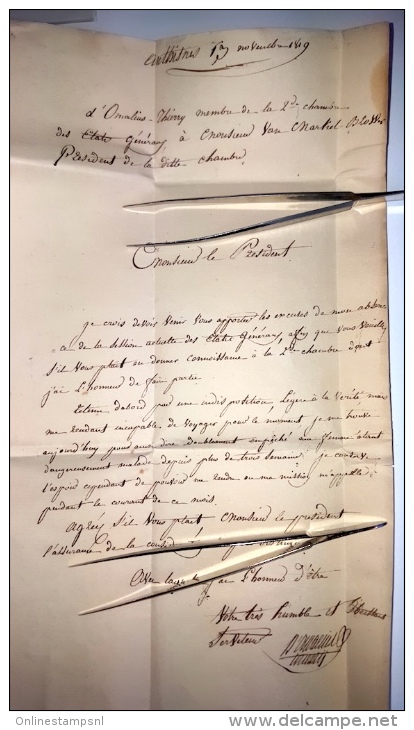 Anthisnes 1er novembre 1819
d'Omalius-Thiery membre de la 2de chambre
des Etats Généraux à Monsieur Van
President de la ditte chambre.
Monsieur le President
je crois devoir venir vous apporter les excuses de mon absen
ce de la session actuelle des Etats Généraux, afin que vous vouliez
s'il vous plait en donner connoissance à la 2de chambre dont
j'ai l'honneur de faire partie
retenu d'abord par une indisposition legere à la verité mais
me rendant incapable de voyager pour le moment, je me trouve
aujourd'huy pour ainsi dire doublement empeché ma femme étant
dangereusement malade depuis plus de trois semaines; je conserve
l'espoir cependant de pouvoir me rendre ou ma mission m'appelle
pendant le courant de ce mois.
agreez s'il vous plait Monsieur le president
l'assurance de la consid
Avec laquelle j'ai l'honneur d'être
Votre très humble et
serviteur
Onlinestampsnl
www.delcampe.net